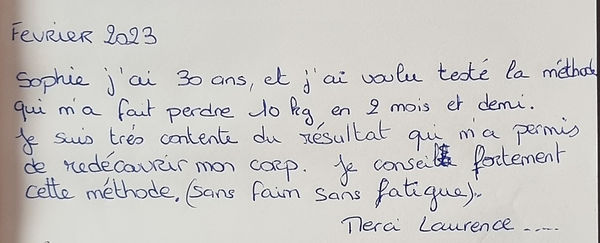 FEVRIER 2023
Sophie j'ai 30 ans, et j'ai voulu testé la méthode
qui m'a fait perdre 10 kg, en 2 mois et demi.
Je suis très contente du résultat qui m'a permis
de redécouvrir mon corp. Je conseille fortement
cette méthode. (sans faim sans fatigue).
Merci Laurence .....